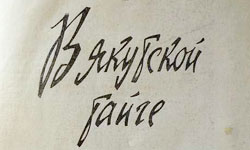 В якутской
тайге